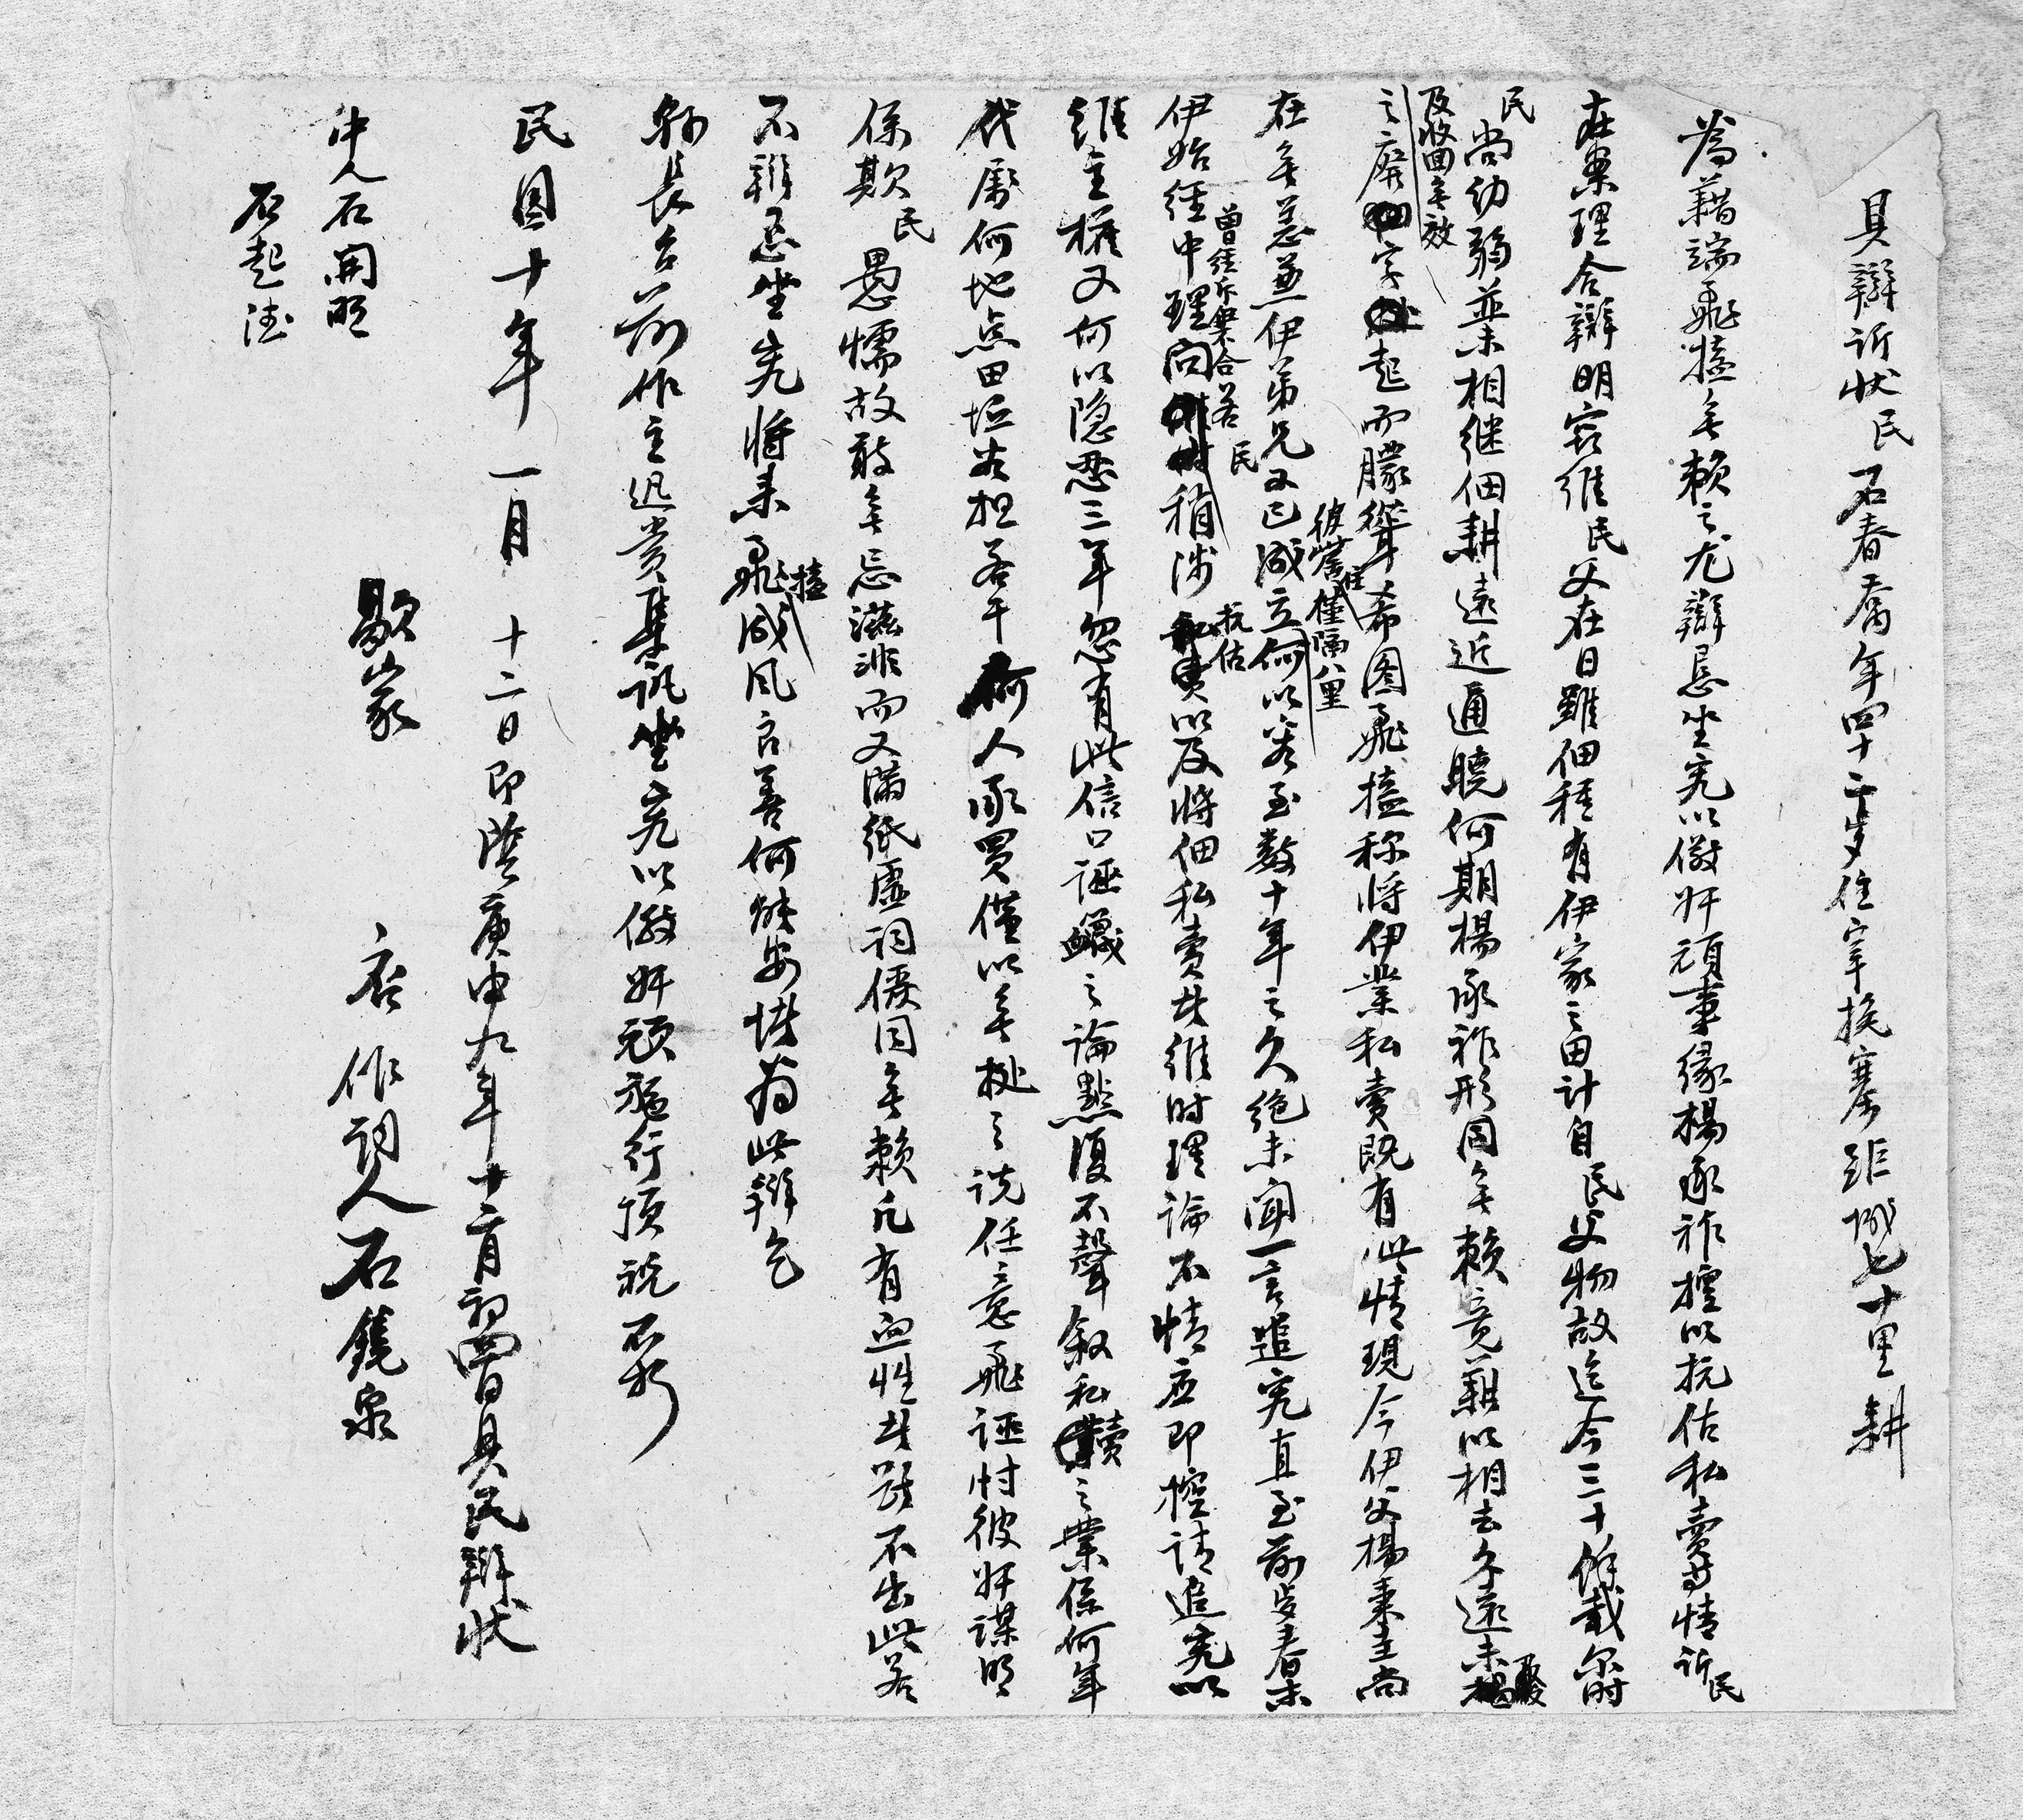 具辯訴狀民石春腐年四十二歲住宰挨寨距城七十里耕
為藉端飛搕無賴之尤辯懇坐究以儆奸頑事緣楊承祚擅以抗估私賣等情訴民
在案理合辯明窃維民父在日雖佃種有伊家之田計自民父物故迄今三十餘載尔時
民尚幼弱並未相繼佃耕遠近通曉何期楊承祚形同無賴竟難以相去久遠未
及收回無效
之廢字起而朦聳希图飛搕称將伊業私賣既有此情現今伊父楊秉圭尚
彼此僅隔八里
在無恙並伊弟兄又已成立何以容至数十年之久絶未聞一言追究直至前歲春某
曾經訴某合若民抗估
伊始經中理向稍涉以及將佃私賣某維时理論不情应即控請追究以
維主權又何以隐忍三年忽有此信口誣衊之論點復不聲叙私賣之業係何年
代屬何地点田坵若担若干何人承買僅以無挺之説任意飛誣忖彼奸謀明
係欺民愚懦故敢無忌滋非而又滿紙虛詞儼同無賴凡有血性者斷不出此若
不辯懇坐究將来飛搕成风良善何能安堵為此辯乞
縣長台前作主迅賞集訊坐究以儆奸頑施行頂祝不朽
民国十年一月十二日即陰庚申九年十二月初四日具民辯状
歇家 石作詞人石鏡泉
中人石開明
石起法